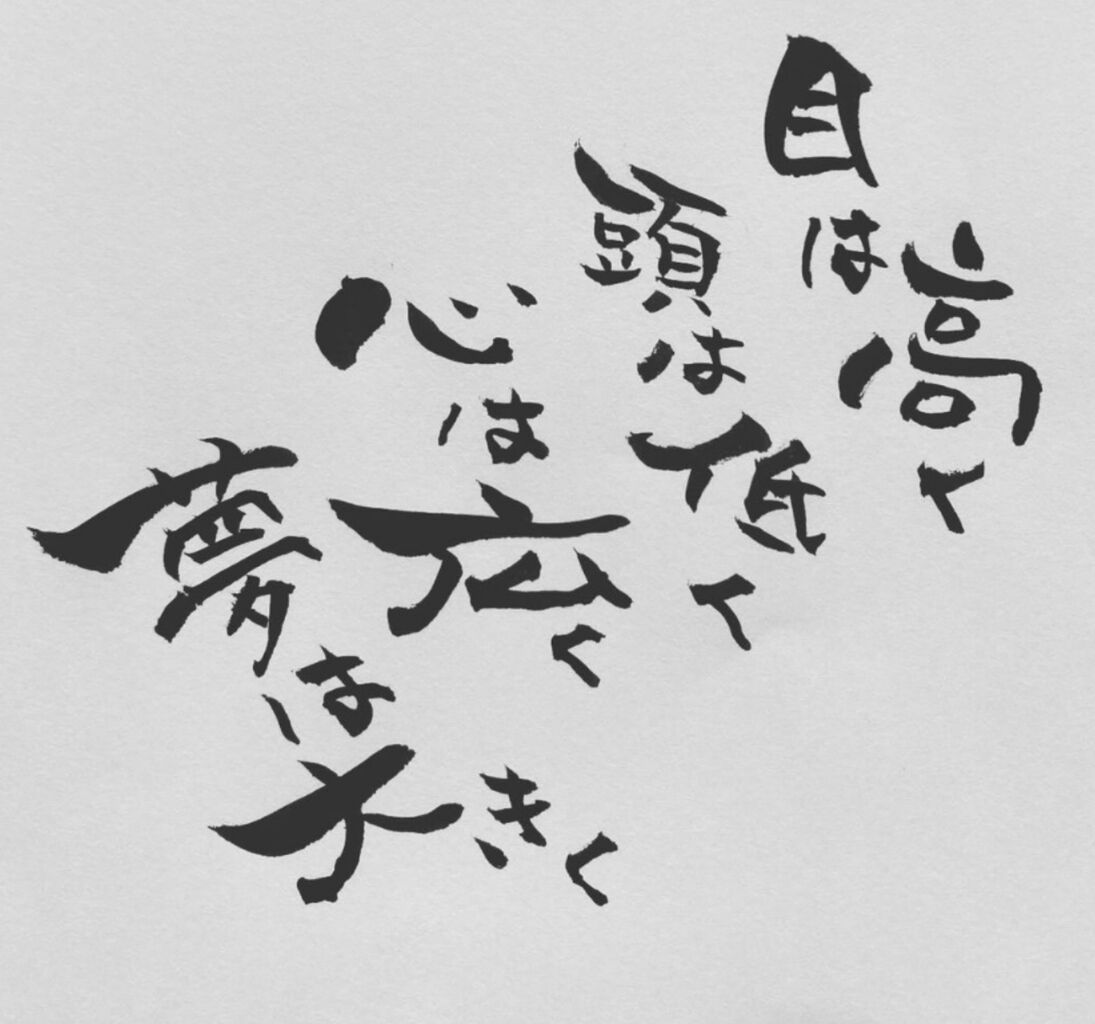 目は高く
頭は低く
心は広く
夢は大きく